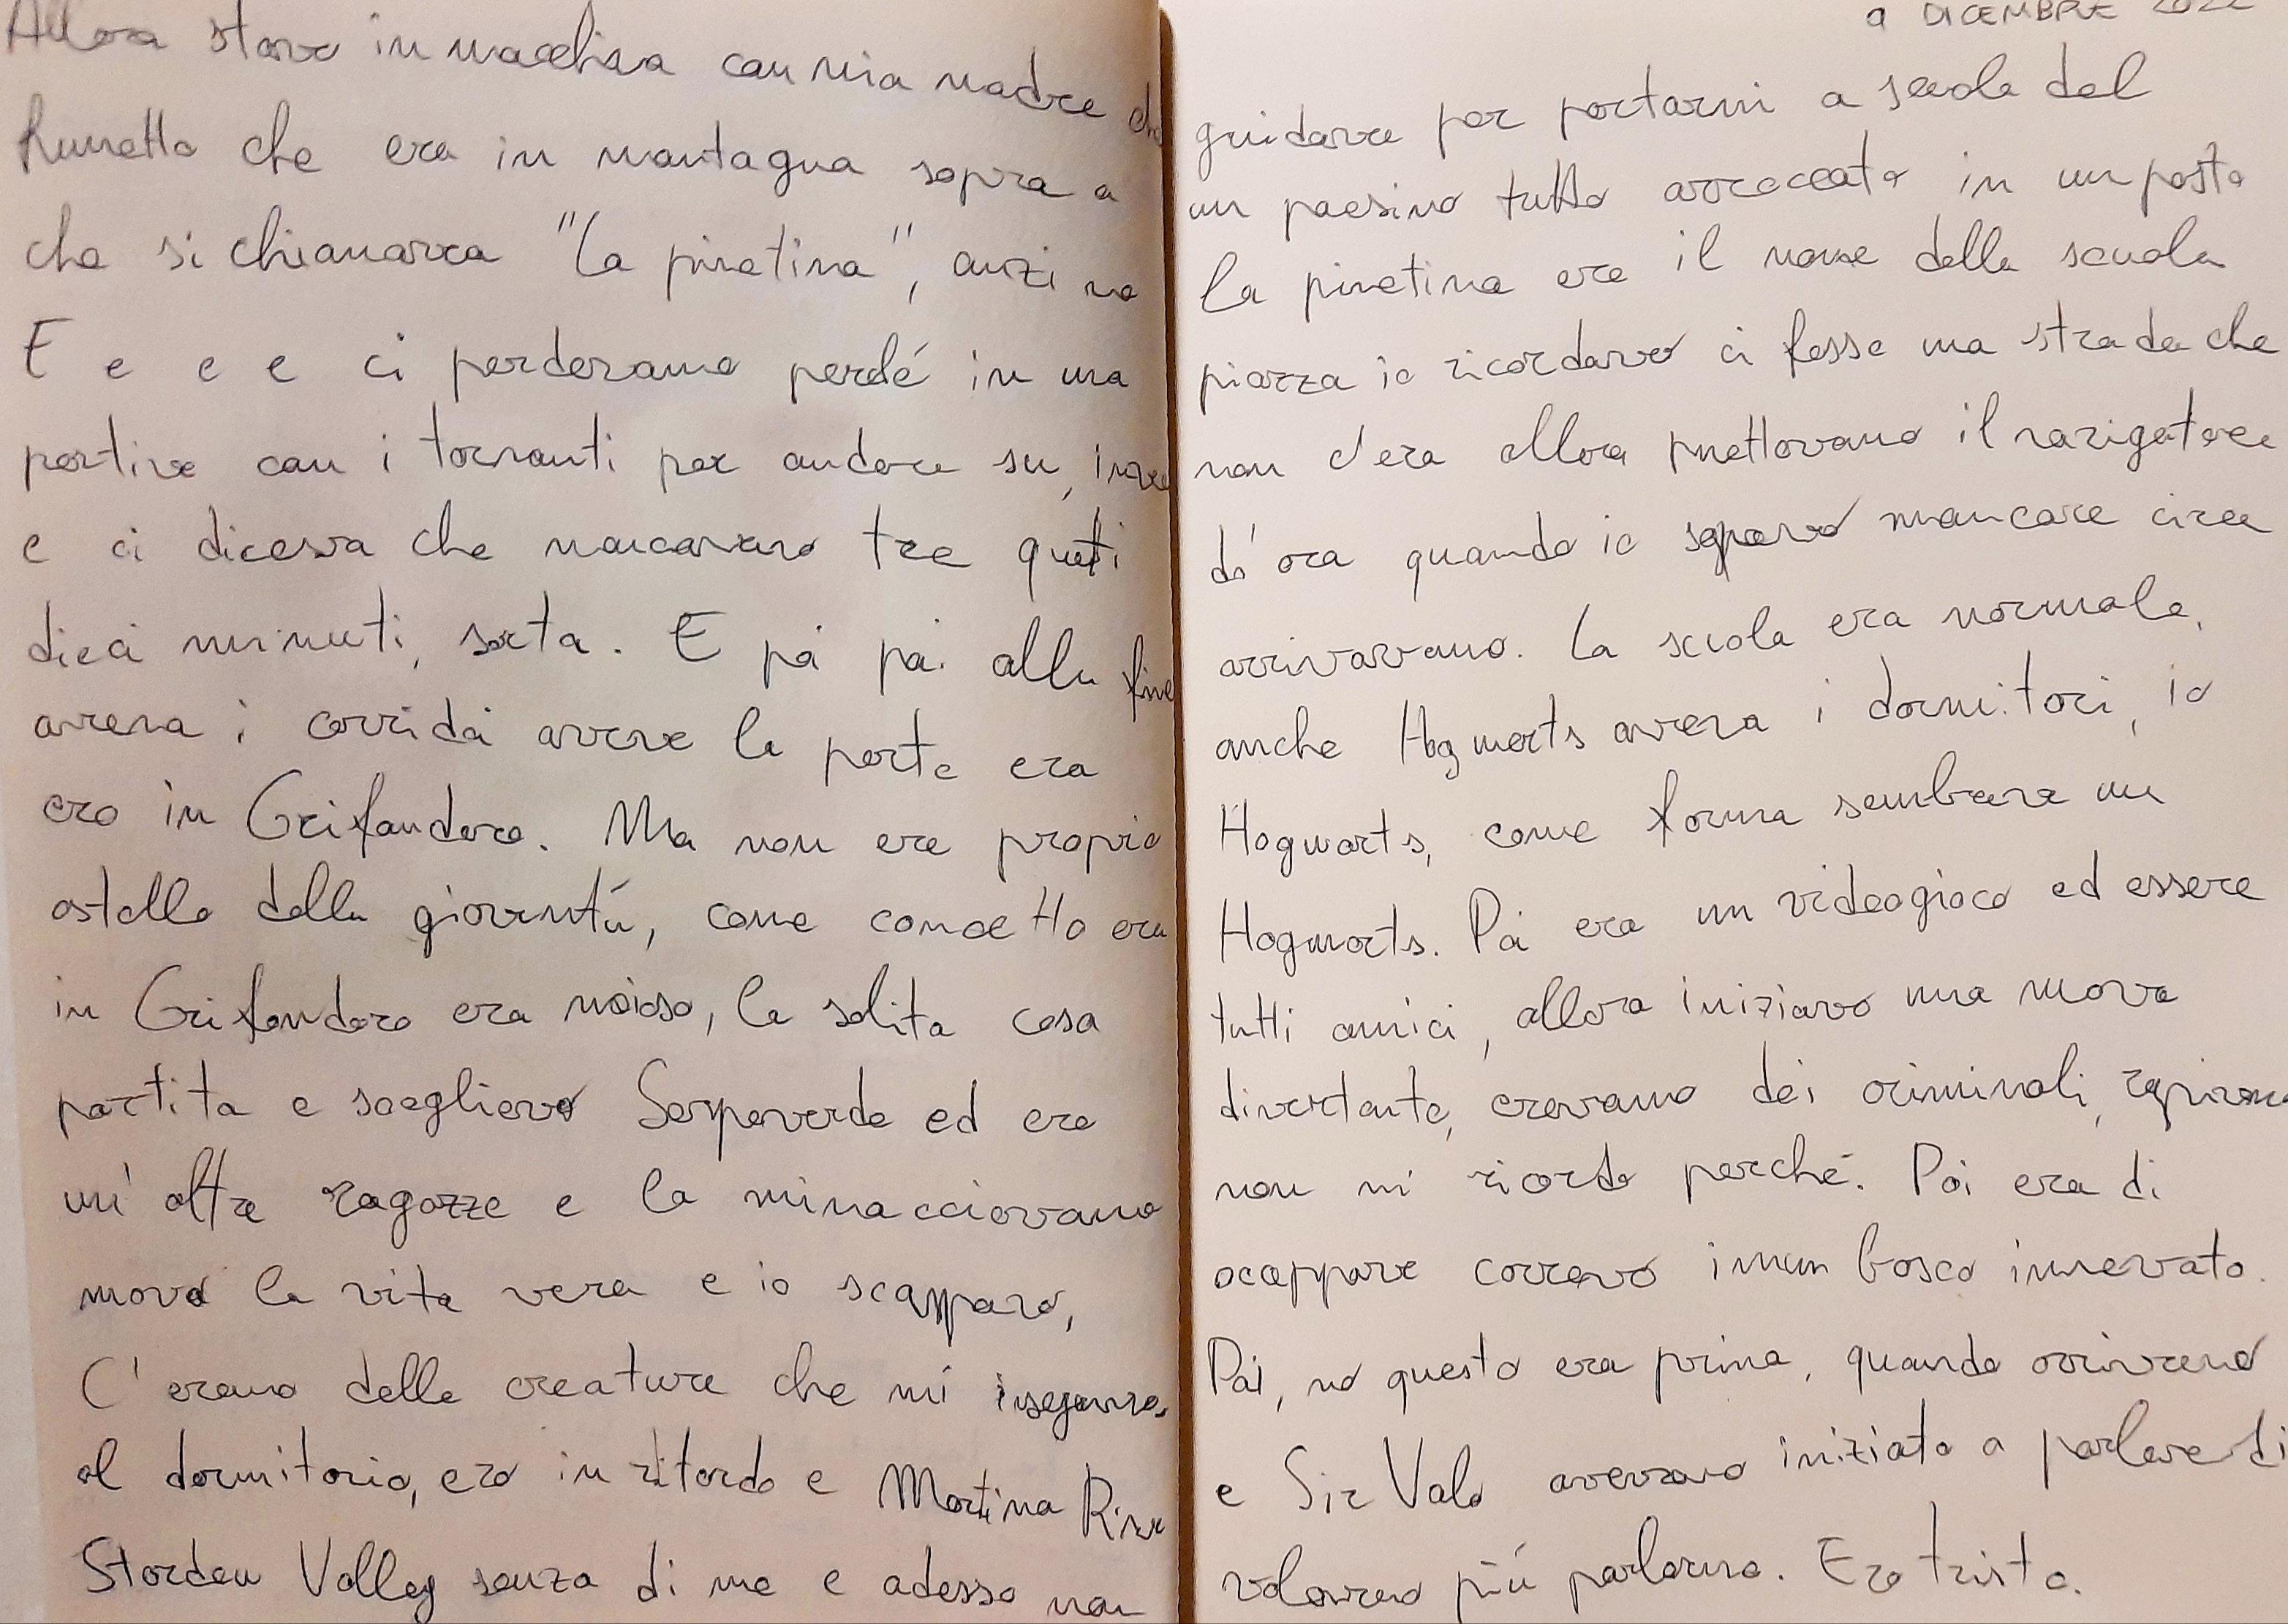 9 DICEMBRE 2022
Allora stavo in macchina con mia madre che guidava per portarmi a scuola dal
fumetto che era in montagna sopra a un paesino tutto arroccato in un posto
che si chiamava "la pinetina", anzi no la pinetina era il nome della scuola
E e e e ci perdevamo perché in una piazza io ricordavo ci fosse una strada che
partiva con i tornanti per andare su, invece non c'era allora mettevamo il navigatore
e ci diceva che mancavano tre quarti d'ora quando io sapevo mancare circa
dieci minuti, sorta. E poi poi alla fine arrivavamo. La scuola era normale,
aveva i corridoi aveva le porte era anche Hogwarts aveva i dormitori, io
ero in Grifondoro. Ma non era proprio Hogwarts, come forma sembrava un
ostello della gioventù, come concetto era Hogwarts. Poi era un videogioco ed essere
in Grifondoro era noioso, la solita cosa tutti amici, allora iniziavo una nuova
partita e sceglievo Serpeverde ed era divertente, eravamo dei criminali, rapivamo
un'altra ragazza e la minacciavamo non mi ricordo perché. Poi era di
nuovo la vita vera e io scappavo, scappare correvo in un bosco innevato.
C'erano delle creature che mi inseguivano. Poi, no questo era prima, quando arrivavo
al dormitorio, ero in ritardo e Martina e Sir Valo avevano iniziato a parlare di
Stardew Valley senza di me e adesso non volevano più parlarne. Ero triste.